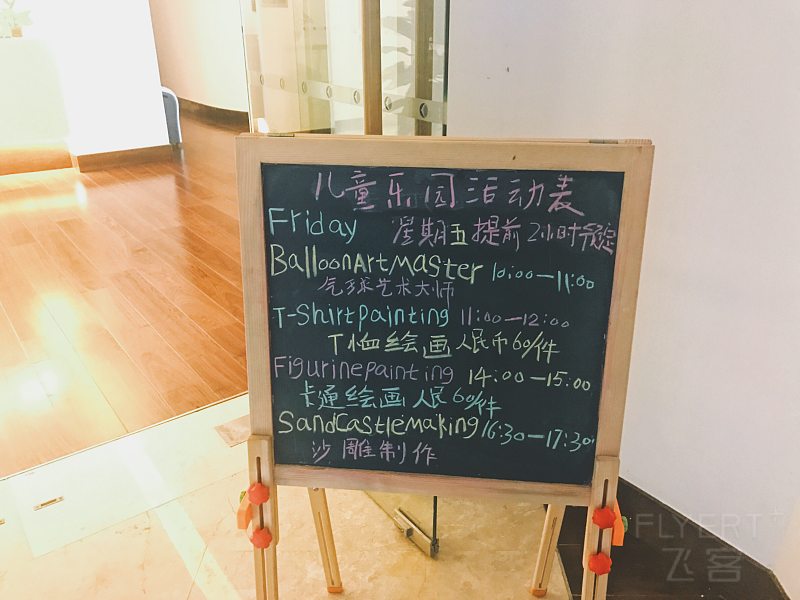 儿童乐园活动表
Friday 星期五提前2小时预定
BalloonArtMaster 10:00—11:00
气球艺术大师
T-Shirtpainting 11:00—12:00
T恤绘画人民币60/件
Figurinepainting 14:00—15:00
卡通绘画人民60/件
SandCastlemaking 16:30—17:30
沙雕制作
FLYERT
飞客